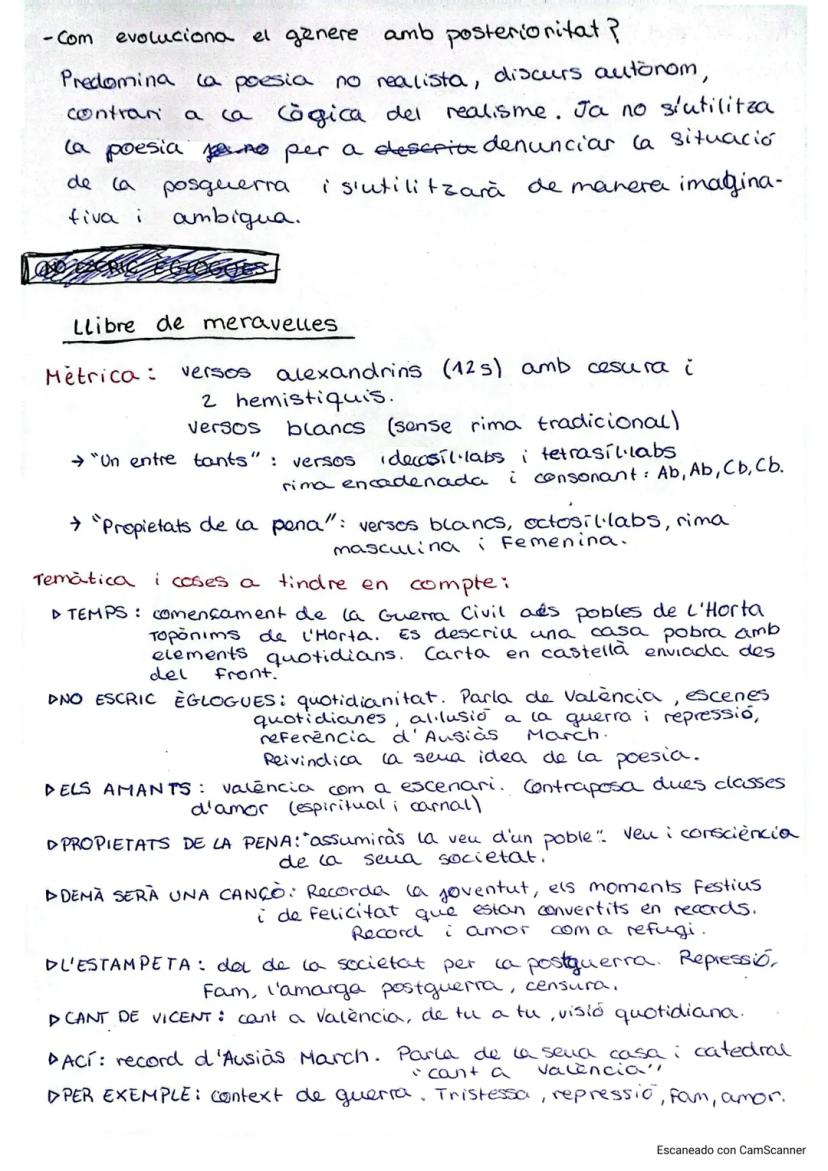 - Com evoluciona el gènere amb posterioritat?
Predomina la poesia no realista, discurs autònom,
contrari a la lògica del realisme. Ja no s'utilitza
la poesia per a denunciar la situació
de la posguerra i s'utilitzarà de manera imagina-
tiva i ambigua.
NO ESCRIC ÈGLOGUES
Llibre de meravelles
Mètrica: versos alexandrins (12s) amb cesura i
2 hemistiquis.
versos blancs (sense rima tradicional)
→ "Un entre tants": versos decasíl·labs i tetrasíl·labs
rima encadenada i consonant: Ab, Ab, Cb, Cb.
→ "Propietats de la pena": versos blancs, octosíl·labs, rima
masculina i femenina.
Temàtica i coses a tindre en compte:
▷ TEMPS: començament de la Guerra Civil als pobles de L'Horta
Topònims de L'Horta. Es descriu una casa pobra amb
elements quotidians. Carta en castellà enviada des
del front.
▷ NO ESCRIC ÈGLOGUES: quotidianitat. Parla de València, escenes
quotidianes, al·lusió a la guerra i repressió,
referència d'Ausiàs March.
Reivindica la seua idea de la poesia.
▷ ELS AMANTS: València com a escenari. Contraposa dues classes
d'amor (espiritual i carnal)
▷ PROPIETATS DE LA PENA: "assumiràs la veu d'un poble". Veu i consciència
de la seua societat.
▷ DEMÀ SERÀ UNA CANÇÓ: Recorda la joventut, els moments festius
i de felicitat que estan convertits en records.
Record i amor com a refugi.
▷ L'ESTAMPETA: dol de la societat per la postguerra. Repressió,
Fam, l'amarga postguerra, censura.
▷ CANT DE VICENT: cant a València, de tu a tu, visió quotidiana.
▷ ACÍ: record d'Ausiàs March. Parla de la seua casa i catedral
"cant a València"
▷ PER EXEMPLE: context de guerra. Tristessa, repressió, fam, amor.
Escaneado con CamScanner